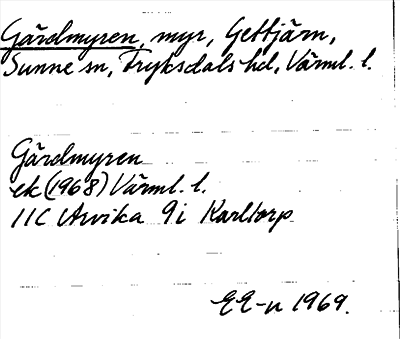 Gärdmyren, myr, Gettjärn,
Sunne sn, Fryksdals hd, Värml. l.
Gärdmyren
ek (1968) Värml. l.
11C Arvika 9i Karltorp
EE-n 1969.